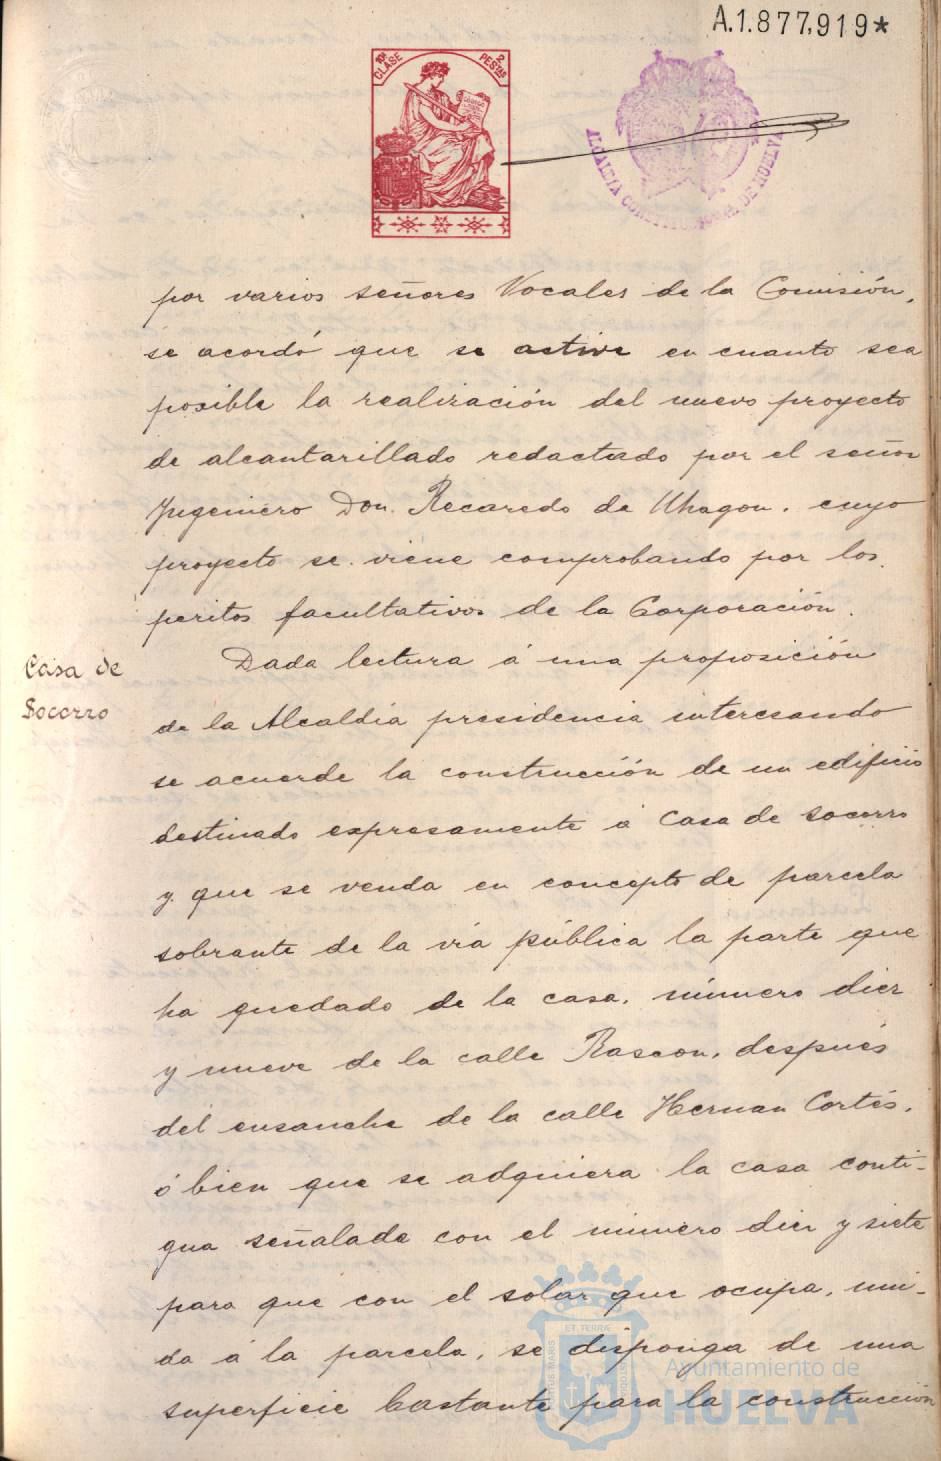 A.1.877,919*
10ª CLASE
2 PESTAS
ALCALDIA CONSTITUCIONAL DE HUELVA
por varios señores Vocales de la Comisión,
se acordó que se active en cuanto sea
posible la realización del nuevo proyecto
de alcantarillado redactado por el señor
Ingeniero Don. Recaredo de Uhagon. cuyo
proyecto se viene comprobando por los
peritos facultativos de la Corporación.
Casa de
Socorro
Dada lectura á una proposición
de la Alcaldía presidencia interesando
se acuerde la construcción de un edificio
destinado expresamente á Casa de Socorro
y que se venda en concepto de parcela
sobrante de la vía pública la parte que
ha quedado de la casa, número diez
y nueve de la calle Rascon, después
del ensanche de la calle Hernan Cortés,
ó bien que se adquiera la casa conti-
gua señalada con el número diez y siete
para que con el solar que ocupa, uni-
da á la parcela, se disponga de una
superficie bastante para la construcción
ET TERRÆ
Ayuntamiento de
HUELVA